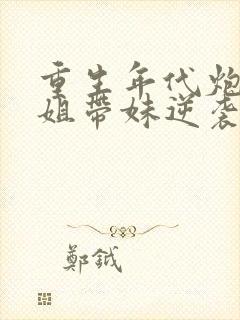 重生年代炮
姐带妹逆袭
鄭鉞